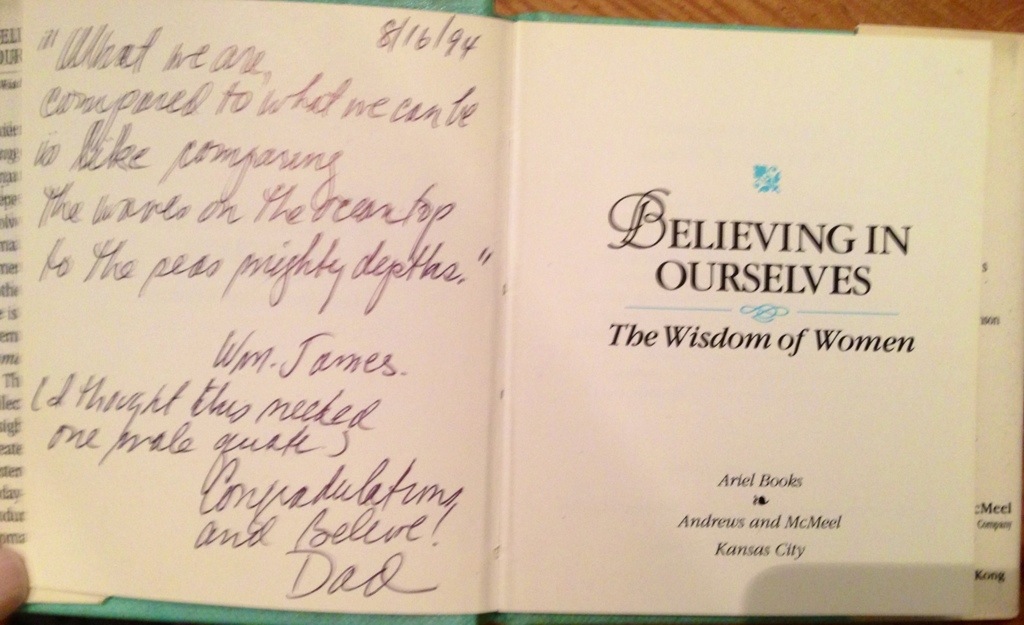 8/16/94
"What we are,
compared to what we can be
is like comparing
the waves on the ocean top
to the seas mighty depths."
Wm. James.
(I thought this needed
one male quote)
Congradulations
and Beleive!
Dad
BELIEVING IN
OURSELVES
The Wisdom of Women
Ariel Books
Andrews and McMeel
Kansas City
McMeel
Company
Kong